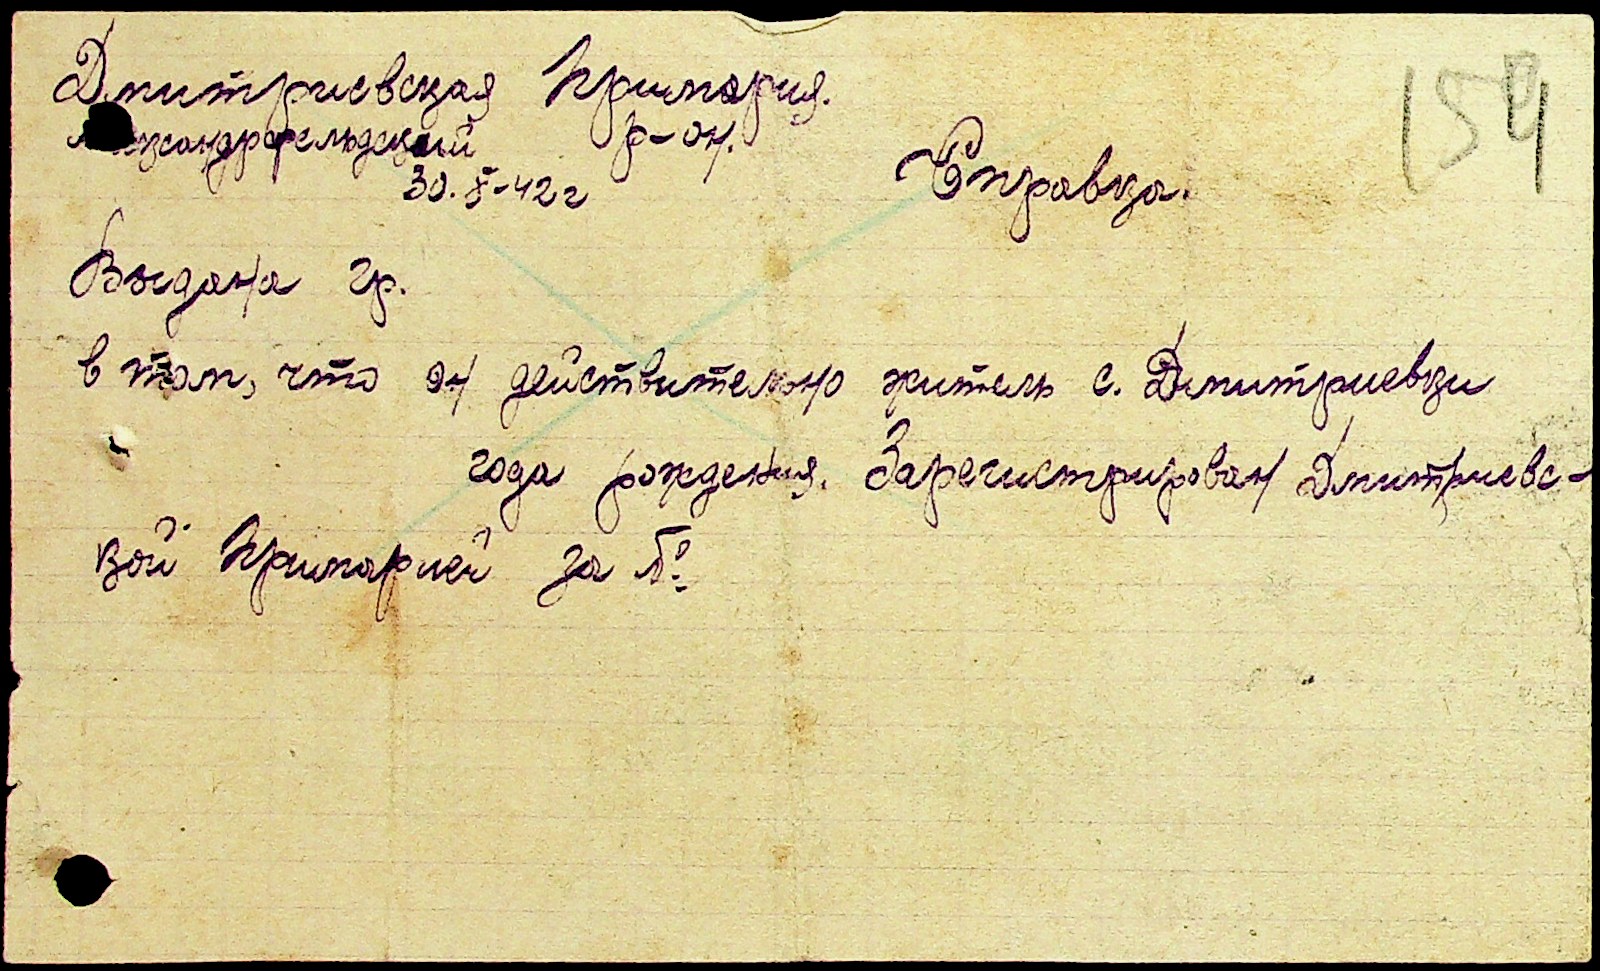 Дмитриевская Примария.
Александрфельдский р-он.
30. X-42 г
154
Справка.
Выдана гр.
в том, что он действительно житель с. Дмитриевки
года рождения. Зарегистрирован Дмитриевс-
кой Примарией за №